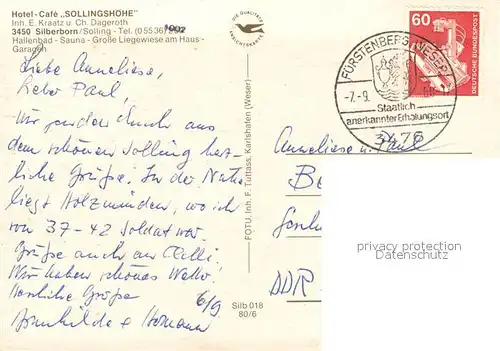 Hotel-Café „SOLLINGSHÖHE"
Inh. E. Kraatz u. Ch. Dageroth
3450 Silberborn/Solling - Tel. (05536)
Hallenbad - Sauna - Große Liegewiese am Haus -
Garagen
DIE QUALITÄTS
ANSICHTSKARTE
Liebe Anneliese,
lieber Paul,
Wir senden Euch aus
dem schönen Solling herz-
liche Grüße. In der Nähe
liegt Holzminden, wo ich
von 37-42 Soldat war.
Grüße auch an
Wir haben schönes Wetter.
Herzliche Grüße 6/9
Silb 018
80/6
FOTU. Inh. F. Tuttass, Karlshafen (Weser)
FÜRSTENBERG, WESER
-7.-9.
Staatlich
anerkannter Erholungsort
3476
60
DEUTSCHE BUNDESPOST
Anneliese u. Paul
DDR
privacy protection
Datenschutz